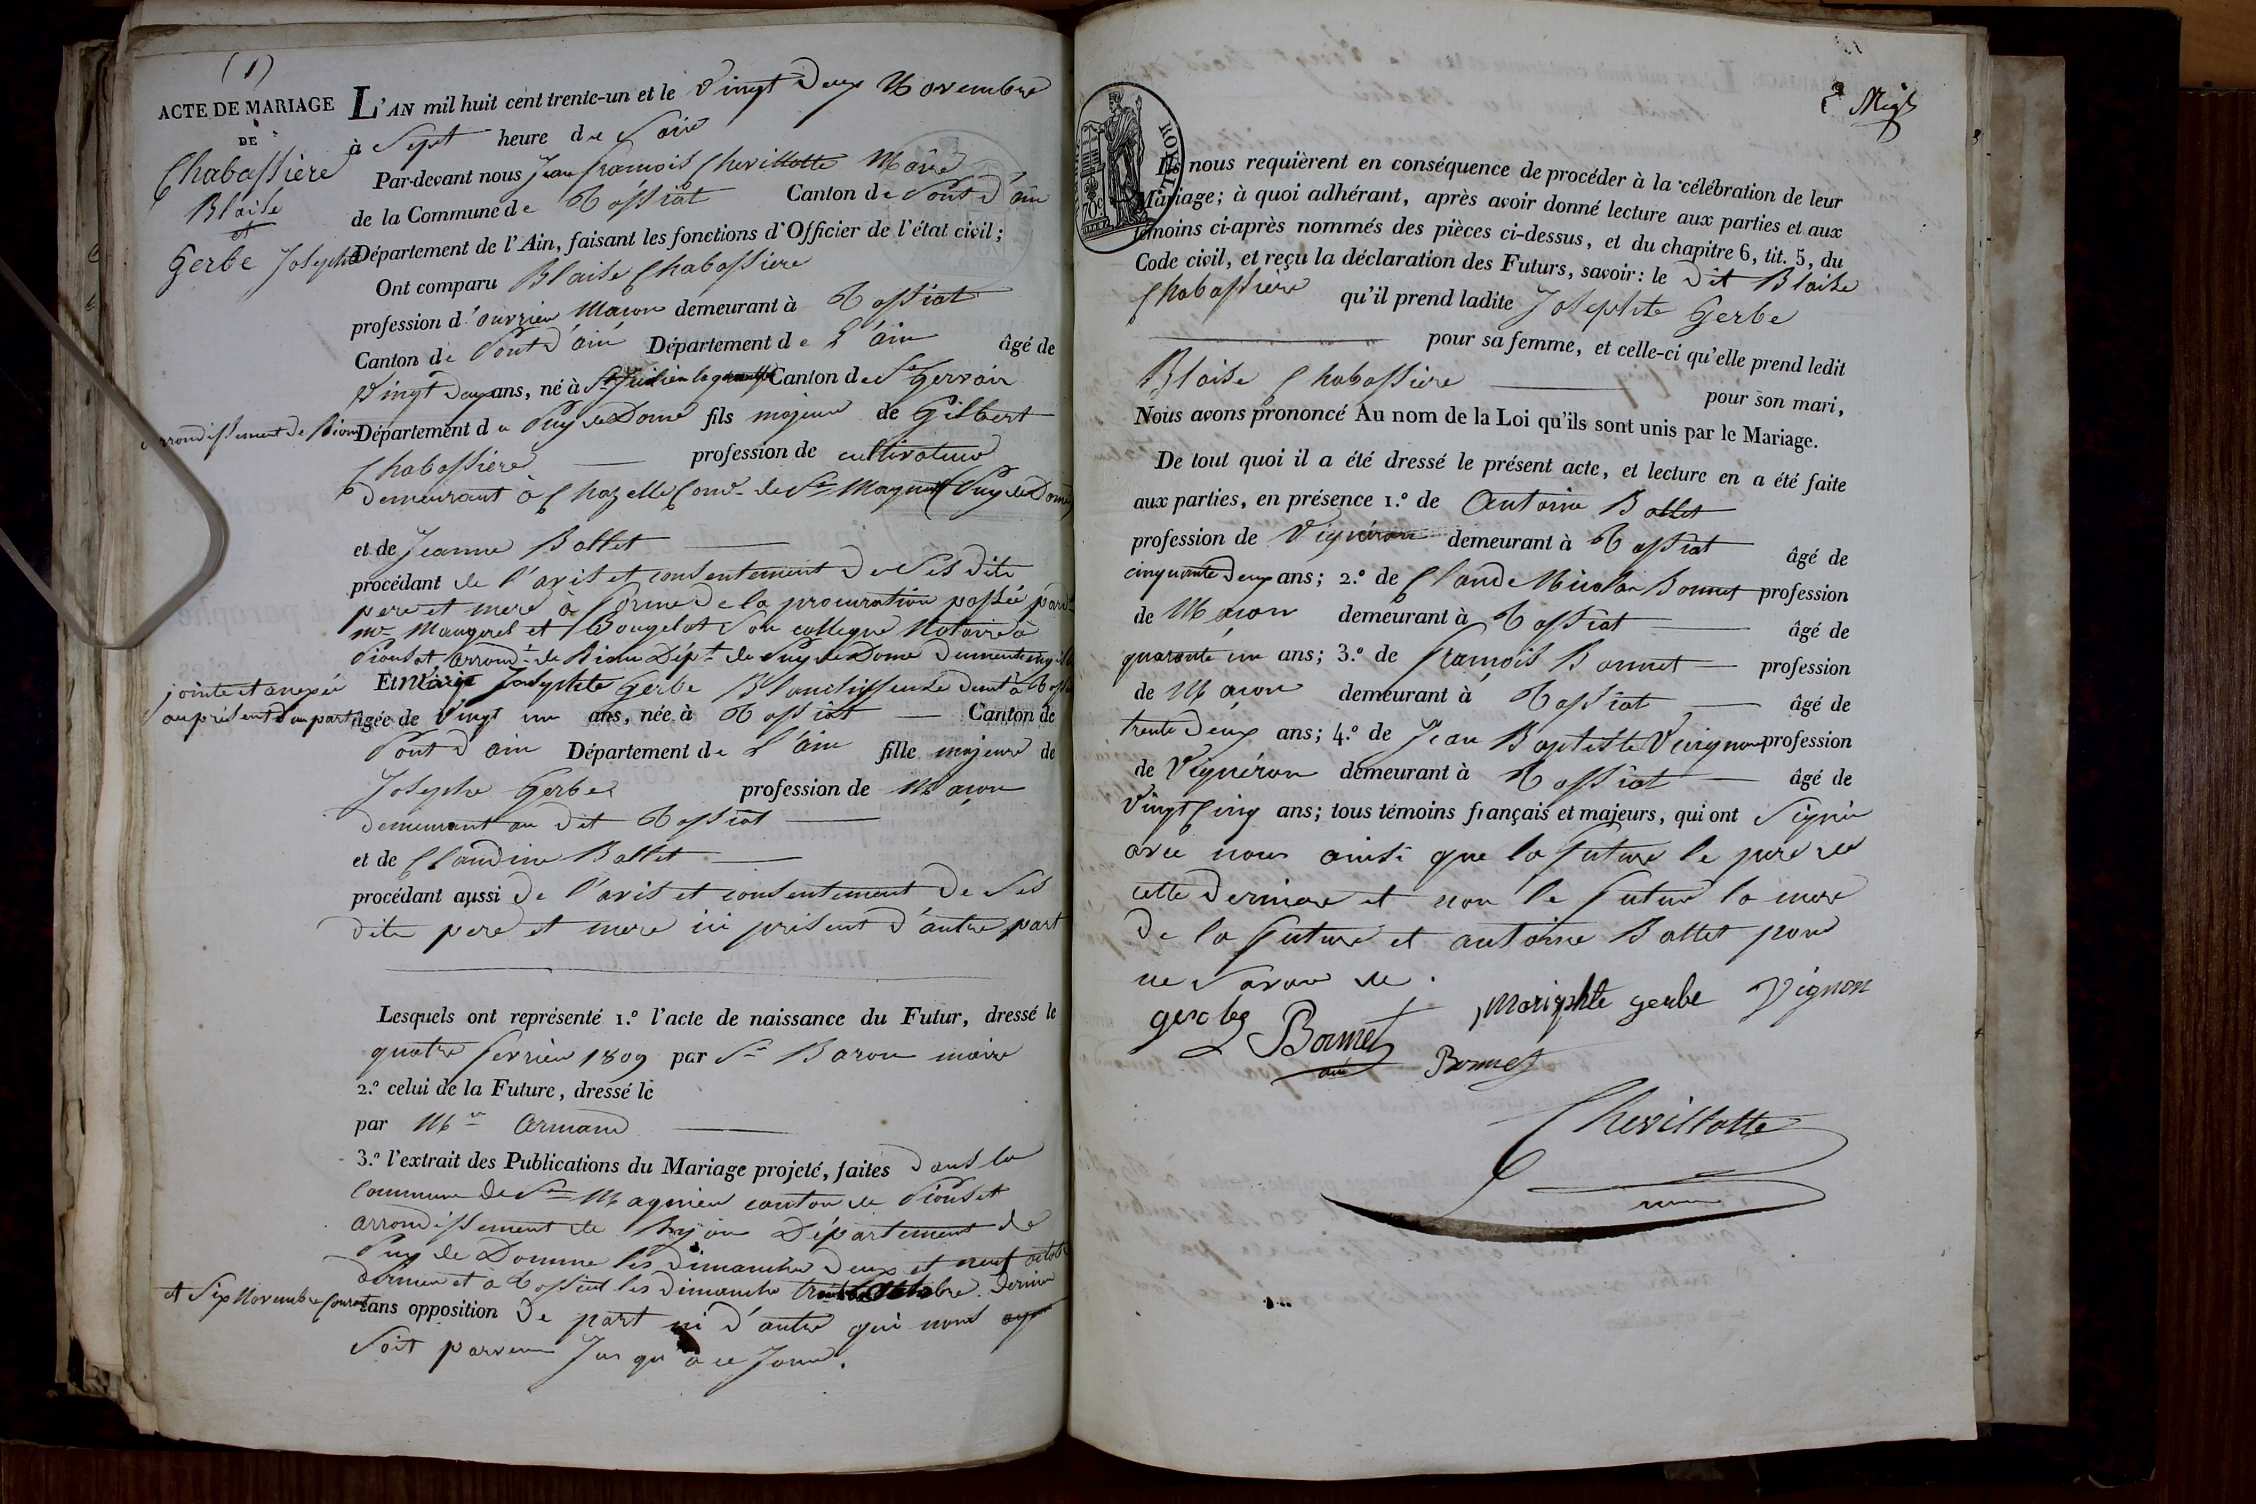 (1)
ACTE DE MARIAGE
DE
Chabassiere
Blaise
et
Gerbe Josephte
L'AN mil huit cent trente-un et le Vingt Deux Novembre
à Sept heure du Soir
Par-devant nous Jean francois Chevillotte Maire
de la Commune de Tossiat Canton de Pont d'ain
Département de l'Ain, faisant les fonctions d'Officier de l'état civil;
Ont comparu Blaise Chabassiere
profession d'ouvrier Macon demeurant à Tossiat
Canton de Pont d'ain Département de L'ain âgé de
Vingt deux ans, né à St Julien la Canton de St Gervais
arrondissement de Riom
Département du Puy de Dome fils majeur de Gilbert
Chabassiere profession de cultivateur
demeurant à Chazelle Com.ne de St Magnet (Puy de Dome)
et de Jeanne Ballet
procédant de l'avis et consentement De Ses dits
pere et mere à forme de la procuration passée pard.
me Maugerel et Bougelot Son collegue Notaire à
Pionsat Arrond.t de Riom Dép.t du Puy de Dome
jointe et anexée
au présent d'une part
Et Marie Josephte Gerbe Blanchisseuse demt à
âgée de Vingt un ans, née à Tossiat Canton de
Pont d'ain Département de L'ain fille majeure de
Joseph Gerbe profession de Macon
demeurant au Dit Tossiat
et de Claudine Ballet
procédant aussi de l'avis et consentement De Ses
dits pere et mere ici présent d'autre part
Lesquels ont représenté 1.º l'acte de naissance du Futur, dressé le
quatre fevrier 1809 par Sr Baron maire
2.º celui de la Future, dressé le
par Mr Armand
3.º l'extrait des Publications du Mariage projeté, faites dans la
Commune de St Magnier canton de Pionset
arrondissement de Department de
Puy de Domme les dimanche deux et neuf octobre
dernier et à Tossiat les dimanche trente octobre dernier
et Six Novembre Courant
sans opposition De part ni d'autre qui nous
Soit parvenu Jusqu'à ce Jour.
ROYAL
70c
Ils nous requièrent en conséquence de procéder à la célébration de leur
Mariage; à quoi adhérant, après avoir donné lecture aux parties et aux
témoins ci-après nommés des pièces ci-dessus, et du chapitre 6, tit. 5, du
Code civil, et reçu la déclaration des Futurs, savoir: le dit Blaise
Chabassiere qu'il prend ladite Josephte Gerbe
pour sa femme, et celle-ci qu'elle prend ledit
Blaise Chabassiere pour son mari,
Nous avons prononcé Au nom de la Loi qu'ils sont unis par le Mariage.
De tout quoi il a été dressé le présent acte, et lecture en a été faite
aux parties, en présence 1.º de Antoine Ballet
profession de Vignéron demeurant à Tossiat âgé de
cinquante deux ans; 2.º de Claude Nicolas Bonnet profession
de Macon demeurant à Tossiat âgé de
quarante un ans; 3.º de francois Bonnet profession
de Macon demeurant à Tossiat âgé de
trente Deux ans; 4.º de Jean Baptiste profession
de Vignéron demeurant à Tossiat âgé de
Vingt Cinq ans; tous témoins français et majeurs, qui ont Signé
avec nous ainsi que la future le pere de
cette derniere et non le futur la mere
De la future et antoine Ballet pour
ne Savoir de.
Marizphte gerbe Vignon
Bonnet
ainé
Bonnet
Chevillotte